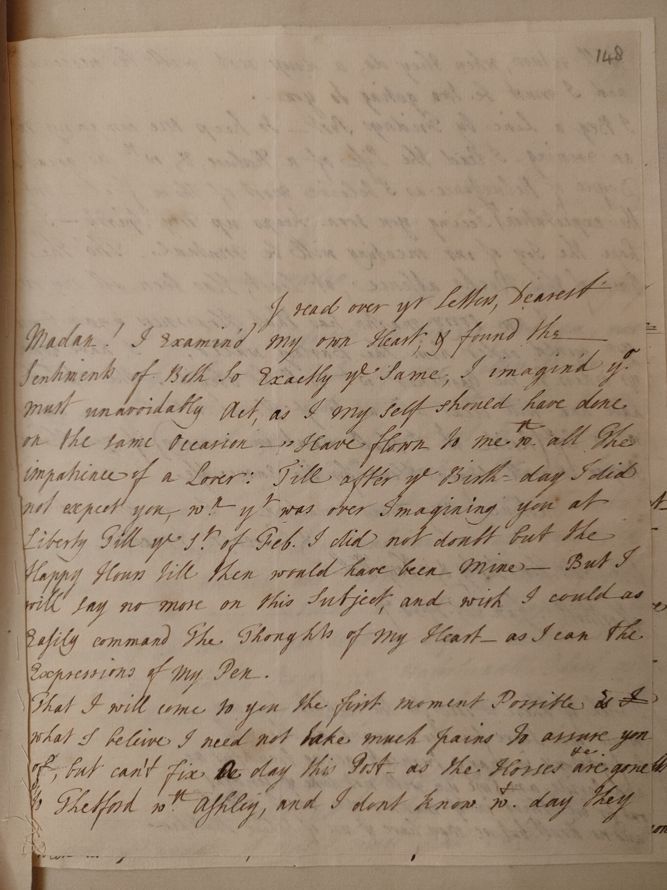 148
I read over yr Letters, Dearest
Madam! I Examin'd my own Heart, & found the
Sentiments of Both So Exactly ye Same, I imagin'd yo
must unavoidably Act, as I my self should have done
on the same Occasion — Have flown to me wth all The
impatience of a Lover: Till after ye Birth-day I did
not expect you, wn yt was over Imagining you at
Liberty Till ye 1st of Feb. I did not doubt but the
Happy Hours till then would have been Mine — But I
will say no more on this Subject, and wish I could as
Easily command The Thoughts of my Heart — as I can the
Expressions of my Pen.
That I will come to you the first moment Possible is
what I beleive I need not take much pains to assure you
of, but can't fix ye day this Post — as the Horses are gone
to Thetford wth Ashley, and I dont know wt day they